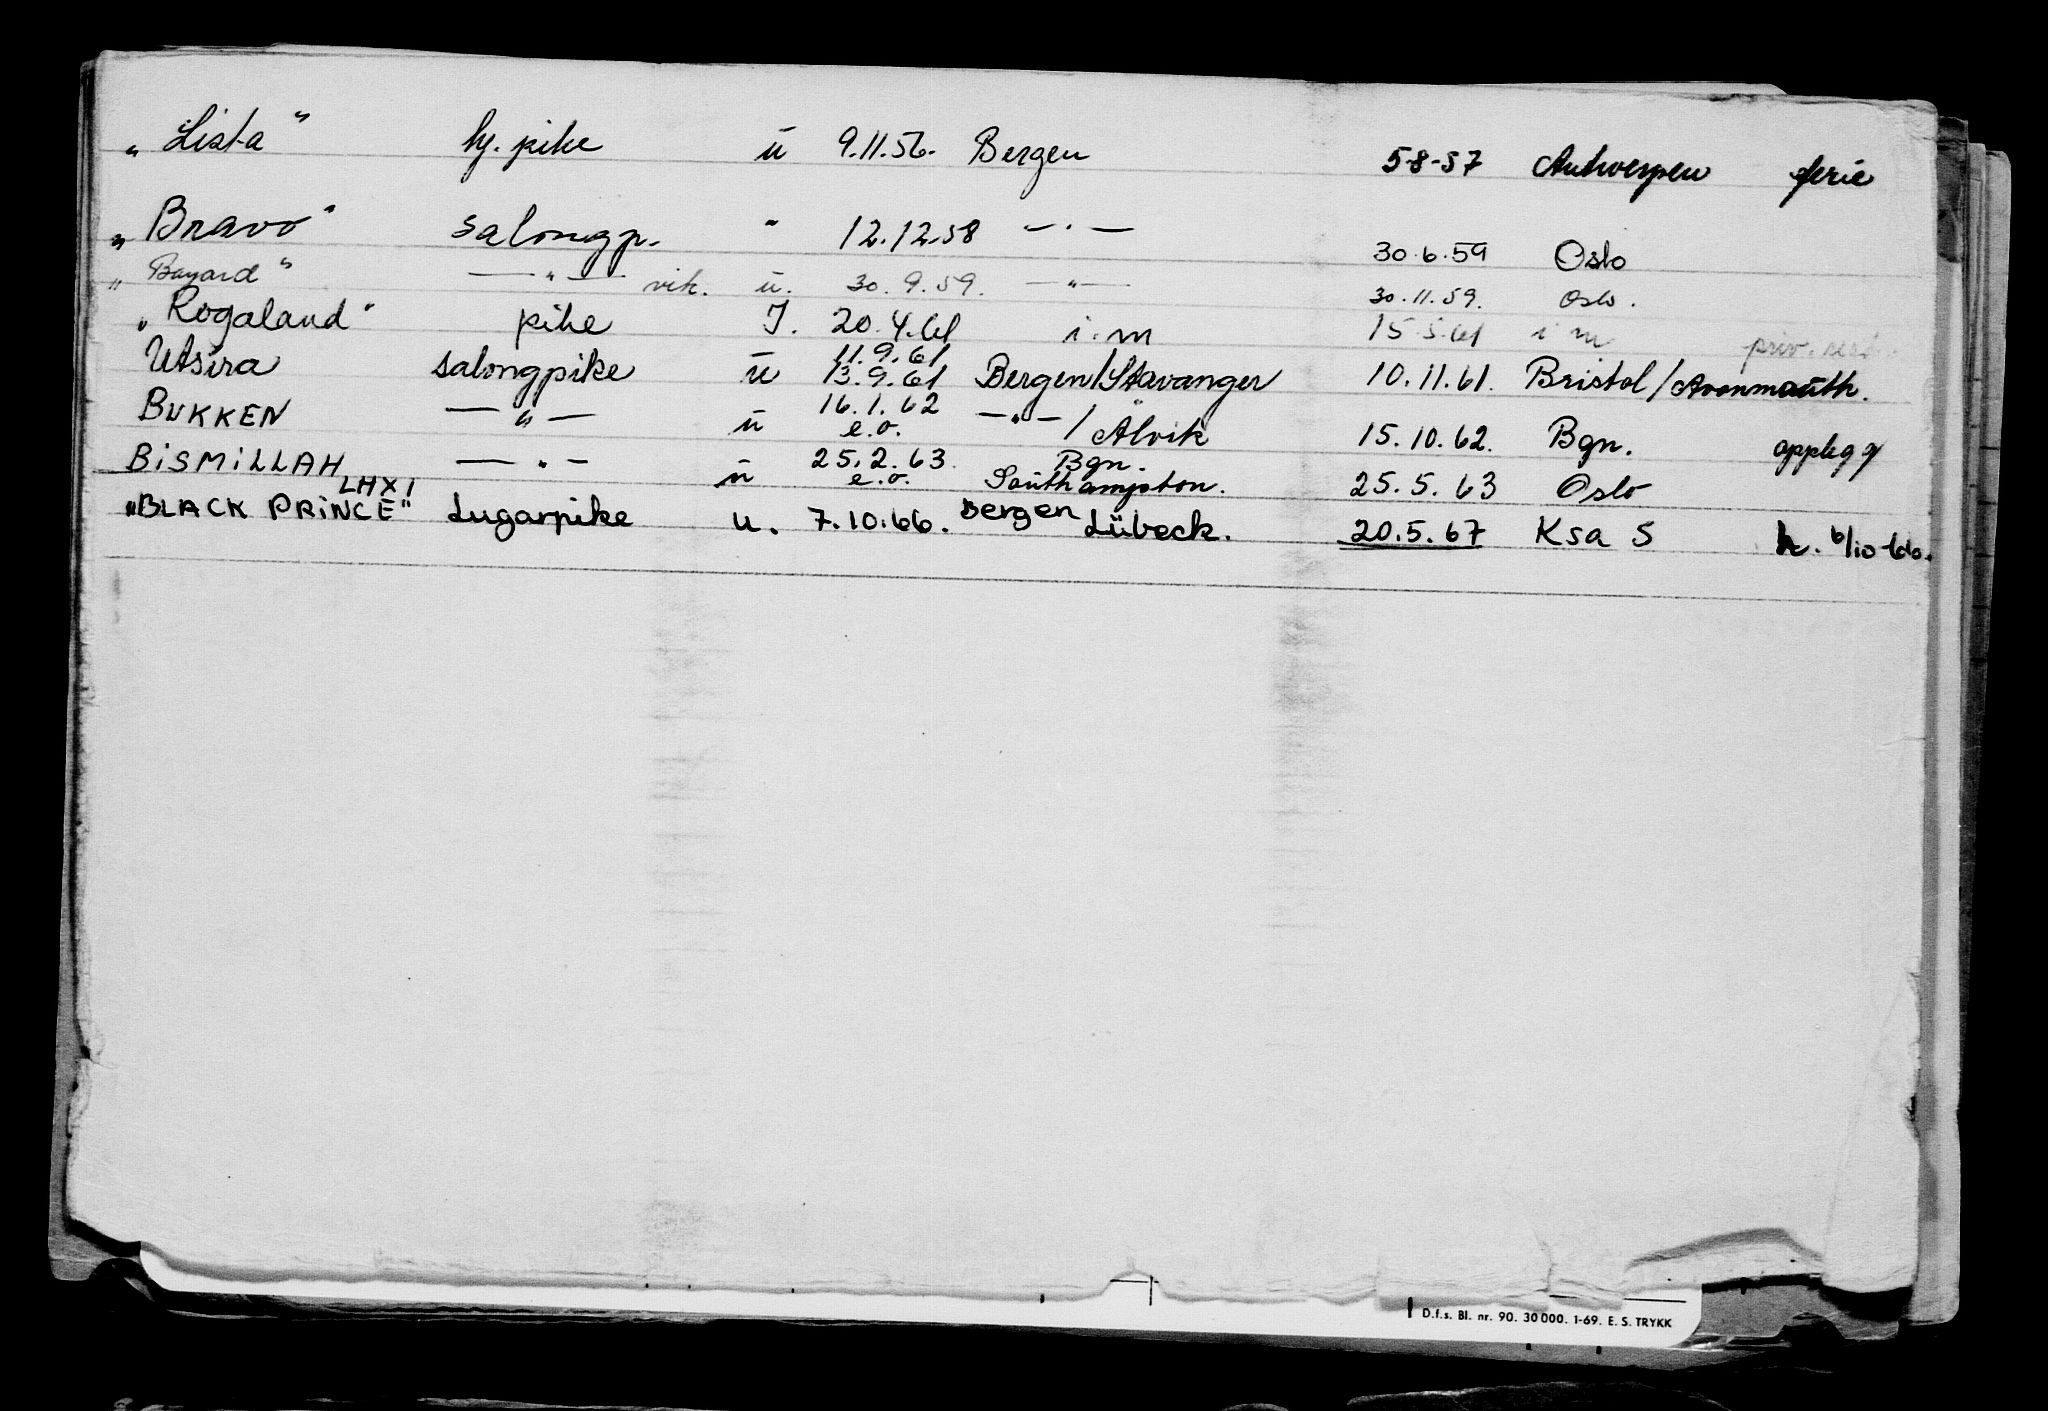 „ Lista " hj. pike ū 9.11.56. Bergen 5-8-57 Antwerpen ferie
„ Bravo " salongp. " 12.12.58 — " — 30.6.59 Oslo
„ Bayard " — " — vik. ū. 30.9.59. — " — 30.11.59. Oslo.
„ Rogaland " pike I. 20.4.61 i.m 15.5.61 i m priv.
Utsira salongpike ū 11.9.61 13.9.61 Bergen/Stavanger 10.11.61. Bristol/Avonmouth.
BUKKEN — " — ū 16.1.62 e.o. — " — / Ålvik 15.10.62. Bgn. opplegg
BISMILLAH — " — ū 25.2.63. e.o. Bgn. Southampton. 25.5.63 Oslo
LHXI
„BLACK PRINCE" Lugarpike u. 7.10.66. Bergen Lübeck. 20.5.67 Ksa S h. 6/10-66.
D.f.s. Bl. nr. 90. 30 000. 1-69. E. S. TRYKK